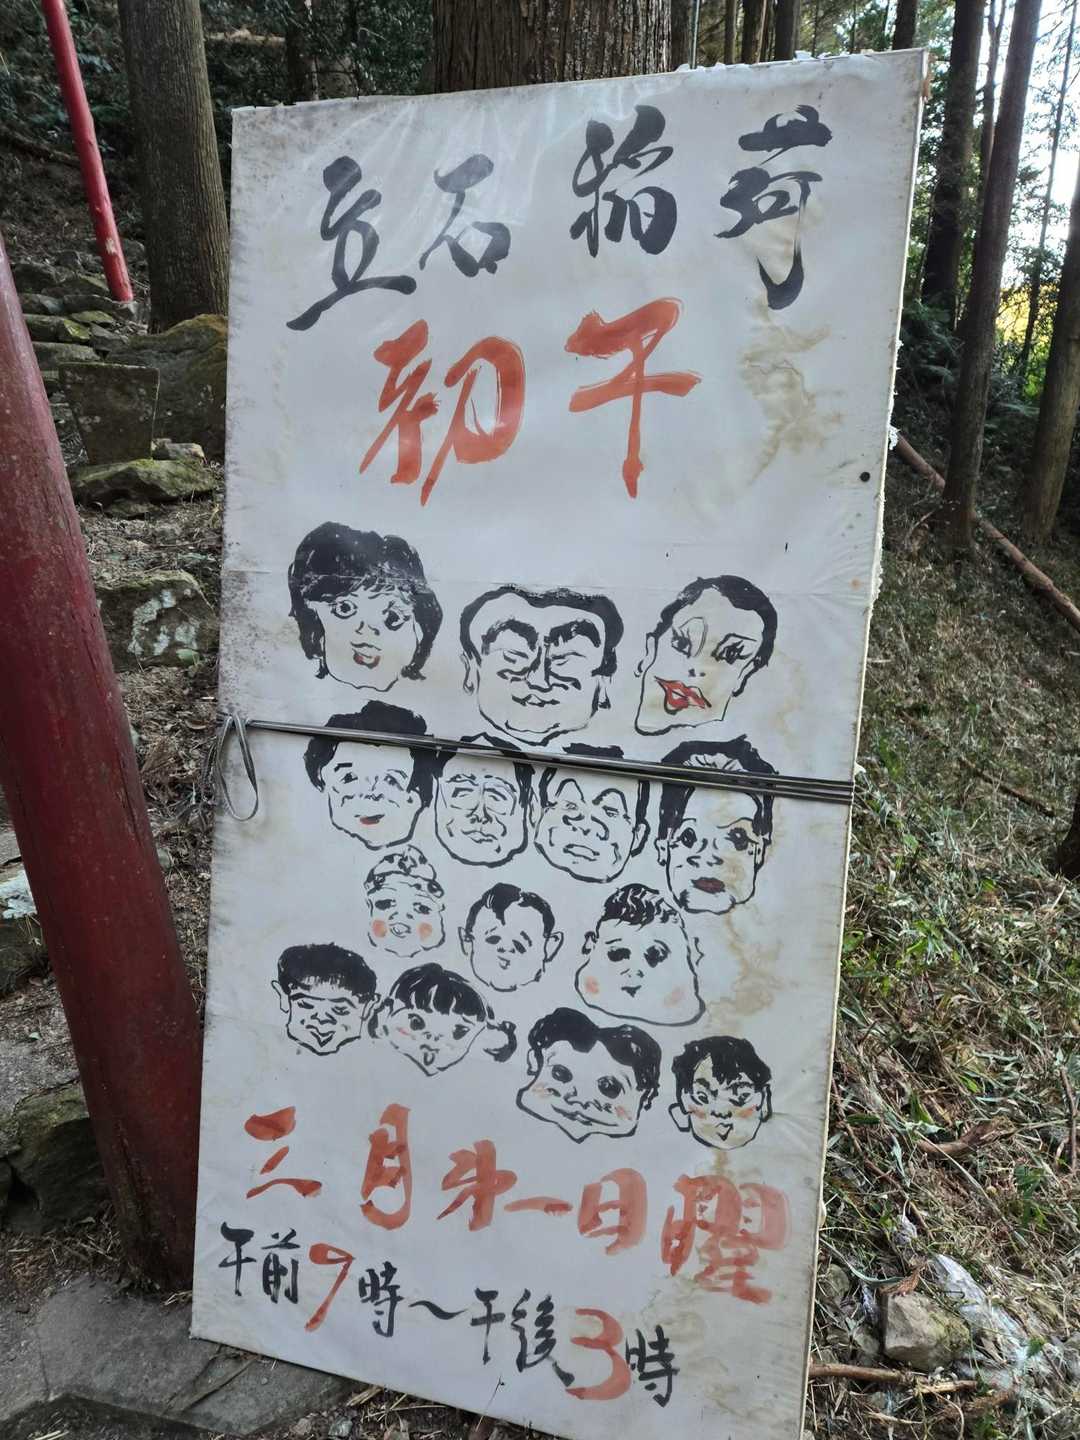 立石稲荷
初午
三月第一日曜
午前9時〜午後3時